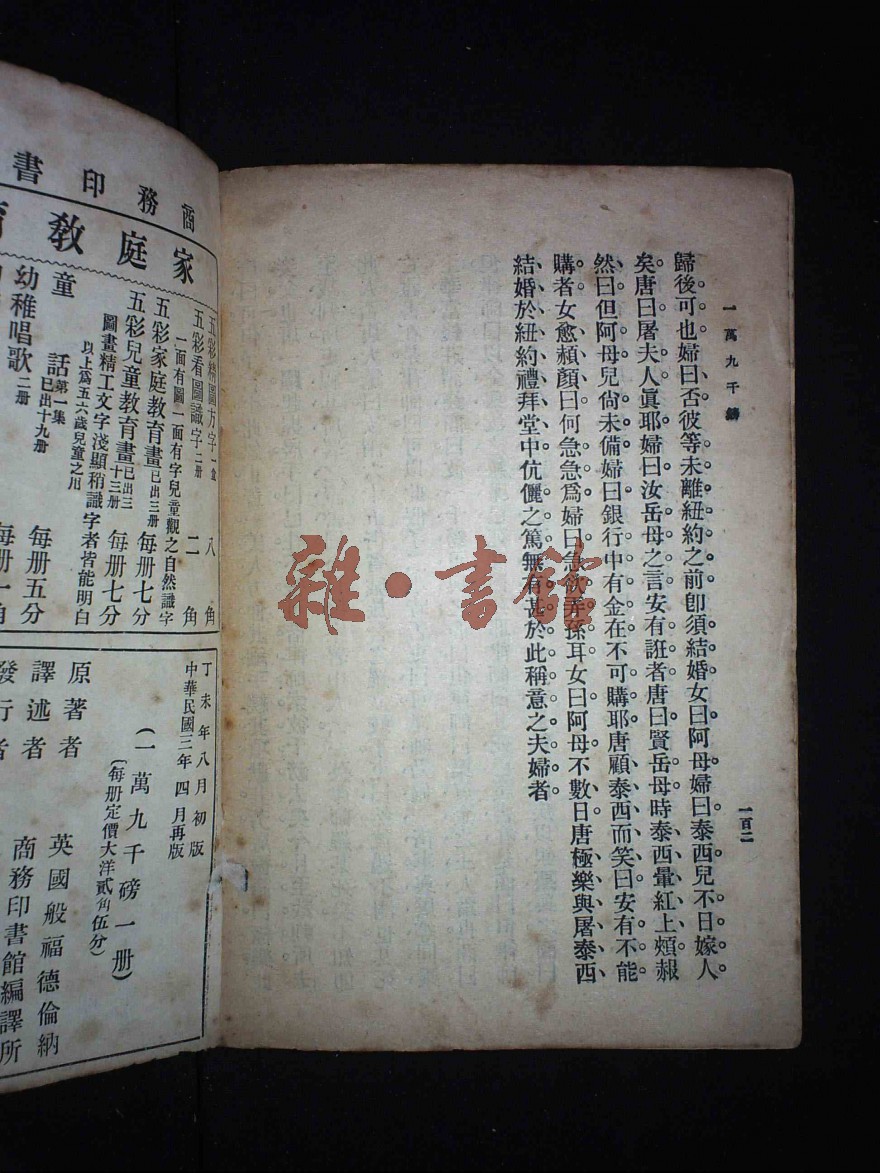 一萬九千鎊
一百二
歸後可也婦曰否彼等未離紐約之前卽須結婚女曰阿母婦曰泰西兒不日嫁人
矣唐曰屠夫人眞耶婦曰汝岳母之言安有誑者唐曰賢岳母時泰西暈紅上頰赧
然曰但阿母兒尙未備婦曰銀行中有金在不可購耶唐顧泰西而笑曰安有不能
購者女愈赬顏曰何急急爲婦曰急欲弄孫耳女曰阿母不數日唐極樂與屠泰西
結婚於紐約禮拜堂中伉儷之篤無有甚於此稱意之夫婦者
雜·書館
商務印書
家庭教
五彩精圖方字一盒 八角
五彩看圖識字二册 二角
一面有圖一面有字兒童觀之自然識字
五彩家庭教育畫已出三册 每册七分
五彩兒童教育畫已出三十三册 每册七分
圖畫精工文字淺顯稍識字者皆能明白
以上爲五六歲兒童之用
童話第一集已出十九册 每册五分
幼稚唱歌二册 每册一角
丁未年八月初版
中華民國三年四月再版
(一萬九千磅一册)
(每册定價大洋貳角伍分)
原著者 英國般福德倫納
譯述者 商務印書館編譯所
發行者